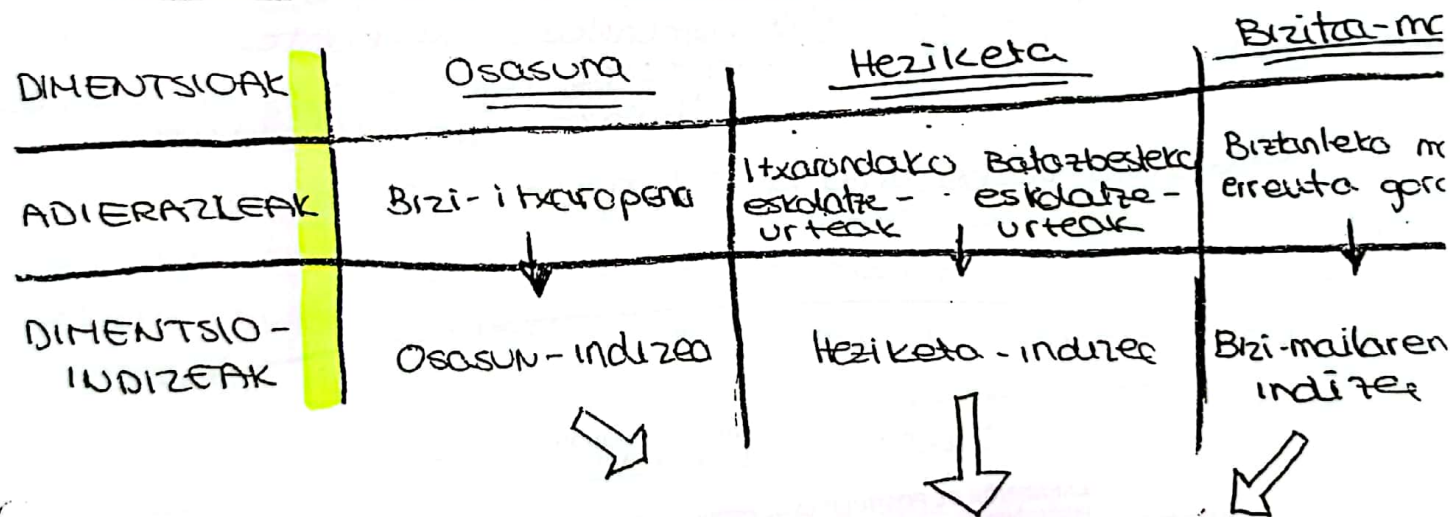 DIMENTSIOAK
Osasuna
Heziketa
Bizitza-
ADIERAZLEAK
Bizi-itxaropena
Itxarondako
eskolatze-
urteak
Batazbesteko
eskolatze-
urteak
Biztanleko
errenta
DIMENTSIO-
INDIZEAK
Osasun-indizea
Heziketa-indizea
Bizi-mailaren
indizea